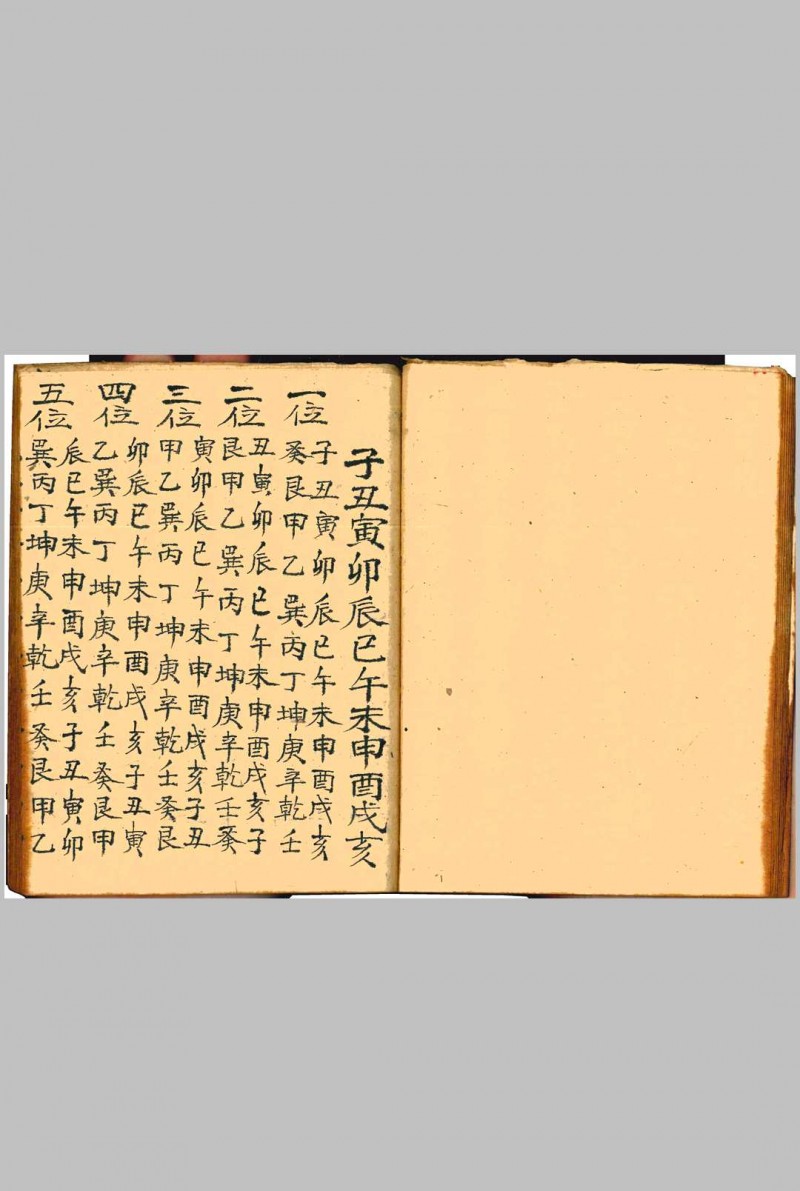 子丑寅卯辰巳午未申酉戌亥
一位
子丑寅卯辰巳午未申酉戌亥
癸艮甲乙巽丙丁坤庚辛乾壬
二位
丑寅卯辰巳午未申酉戌亥子
艮甲乙巽丙丁坤庚辛乾壬癸
三位
寅卯辰巳午未申酉戌亥子丑
甲乙巽丙丁坤庚辛乾壬癸艮
四位
卯辰巳午未申酉戌亥子丑寅
乙巽丙丁坤庚辛乾壬癸艮甲
五位
辰巳午未申酉戌亥子丑寅卯
巽丙丁坤庚辛乾壬癸艮甲乙